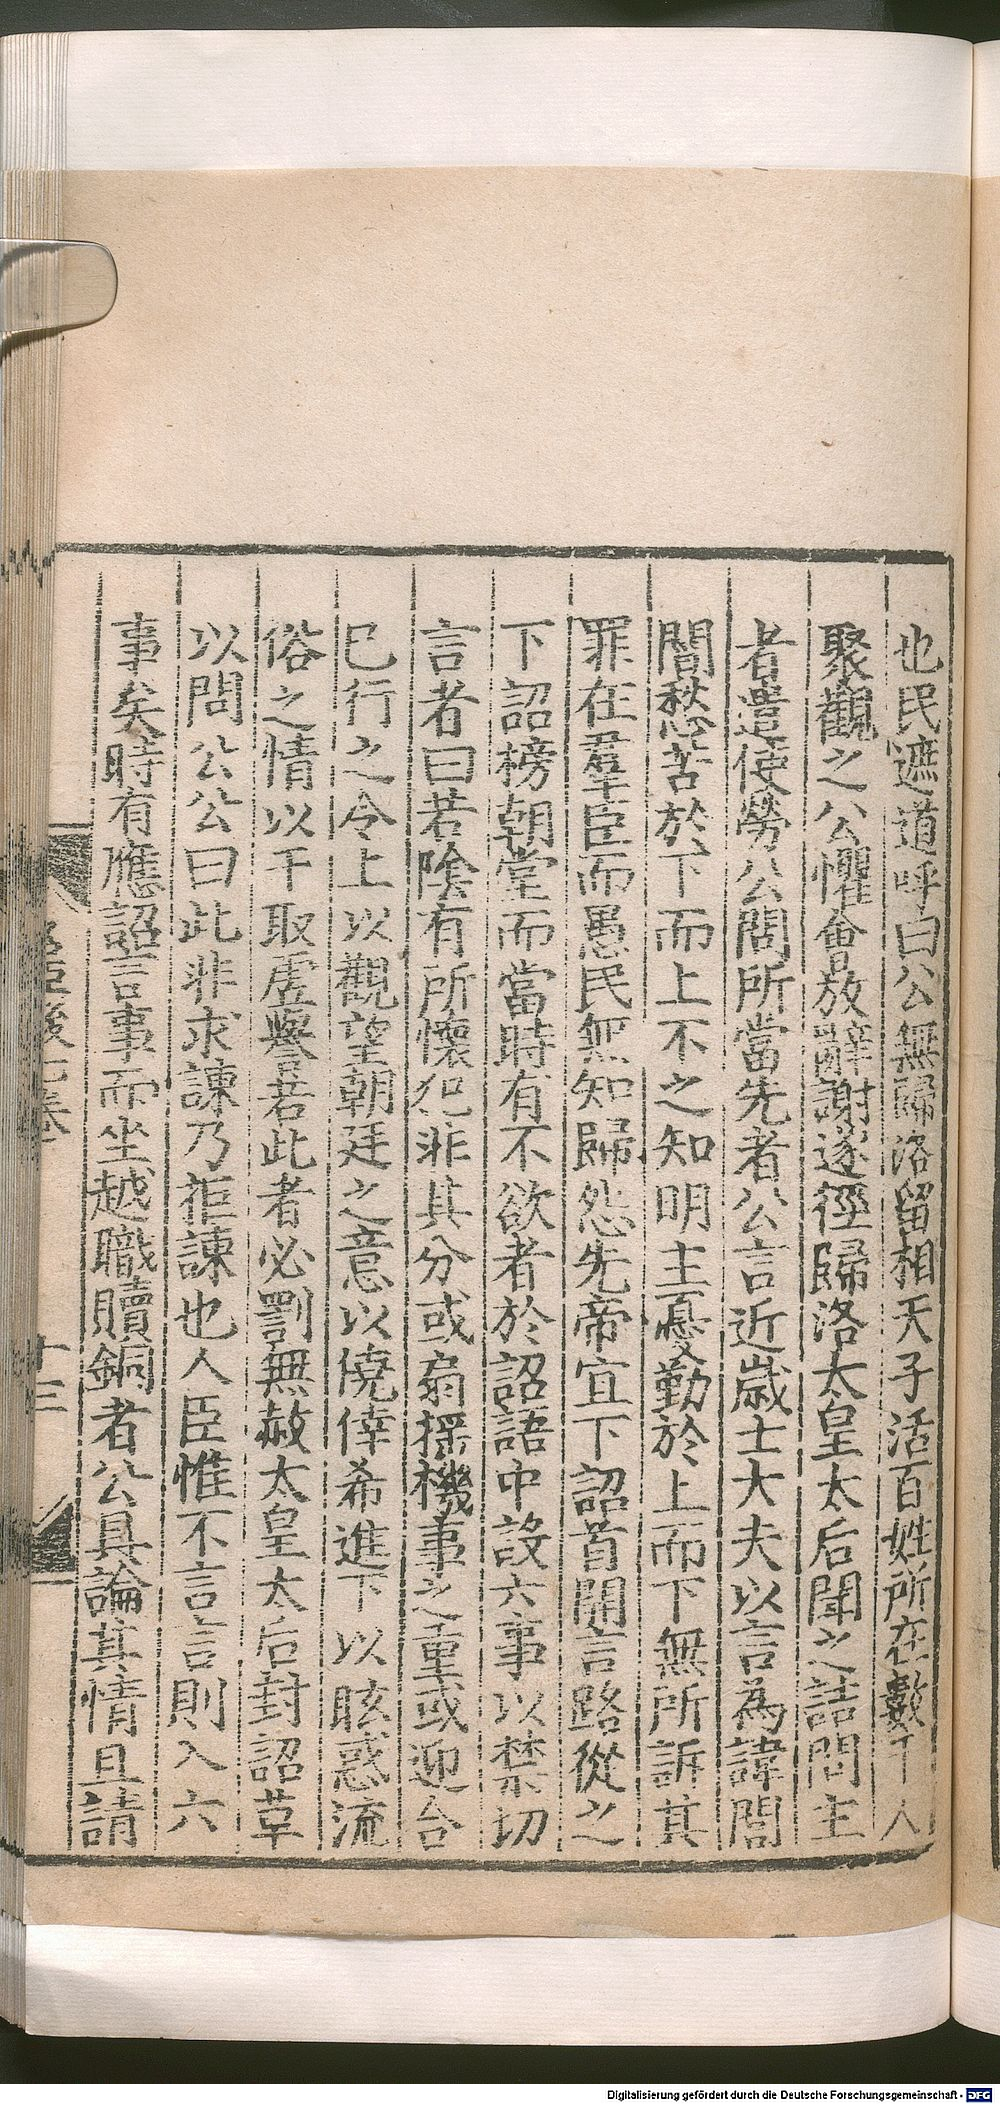 也民遮道呼曰公無歸洛留相天子活百姓所在數千人
聚觀之公懼會放辭謝遂徑歸洛太皇太后聞之詰問主
者遣使勞公問所當先者公言近歲士大夫以言為諱閭
閻愁苦於下而上不之知明主憂勤於上而下無所訴其
罪在羣臣而愚民無知歸怨先帝宜下詔首開言路從之
下詔榜朝堂而當時有不欲者於詔語中設六事以禁切
言者曰若陰有所懷犯非其分或扇揺機事之重或迎合
已行之令上以觀望朝廷之意以僥倖希進下以眩惑流
俗之情以干取虛譽若此者必罰無赦太皇太后封詔草
以問公公曰此非求諫乃拒諫也人臣惟不言言則入六
事矣時有應詔言事而坐越職贖銅者公具論其情且請
十三
Digitalisierung gefördert durch die Deutsche Forschungsgemeinschaft - DFG